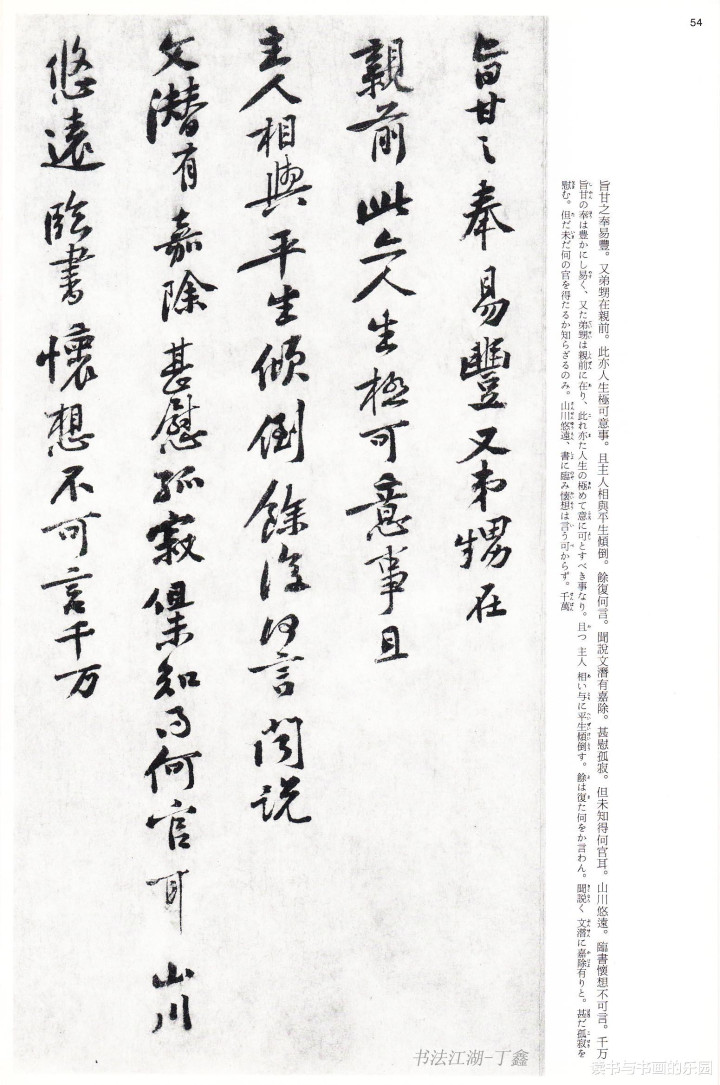 54
旨甘之奉易豐。又弟甥在親前。此亦人生極可意事。且主人相與平生傾倒。餘復何言。聞説文潛有嘉除。甚慰孤寂。但未知得何官耳。山川悠遠。臨書懷想不可言。千万
旨甘の奉は豊かにし易く、又た弟甥は親前に在り、此れ亦た人生の極めて意に可とすべき事なり。且つ 主人 相い与に平生傾倒す。餘は復た何をか言わん。聞説く 文潛に嘉除有りと。甚だ孤寂を
慰む。但だ未だ何の官を得たるか知らざるのみ。山川悠遠、書に臨み懷想は言う可からず。千萬
旨甘之奉易豐又弟甥在
親前此亦人生極可意事且
主人相與平生傾倒餘復何言聞説
文潛有嘉除甚慰孤寂但未知得何官耳山川
悠遠臨書懷想不可言千万
书法江湖-丁鑫
书与书画的乐园